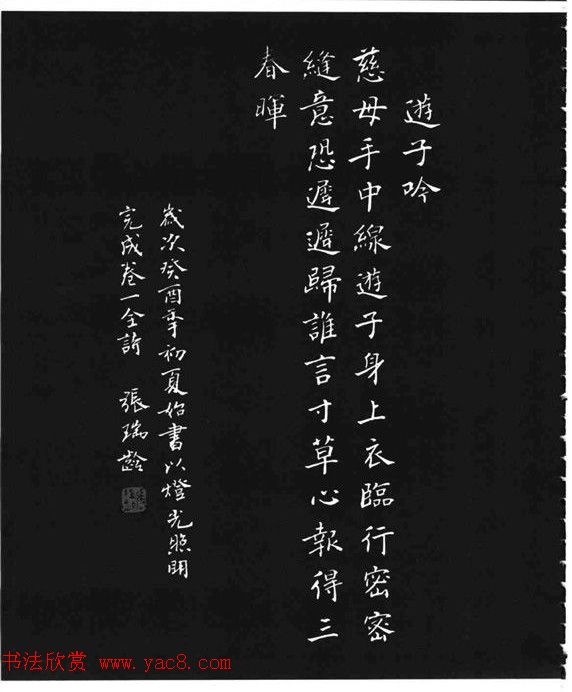 遊子吟
慈母手中線遊子身上衣臨行密密
縫意恐遲遲歸誰言寸草心報得三
春暉
歲次癸酉年初夏始書以燈光照明
完成卷一全詩 張瑞齡
书法欣赏 www.yac8.com